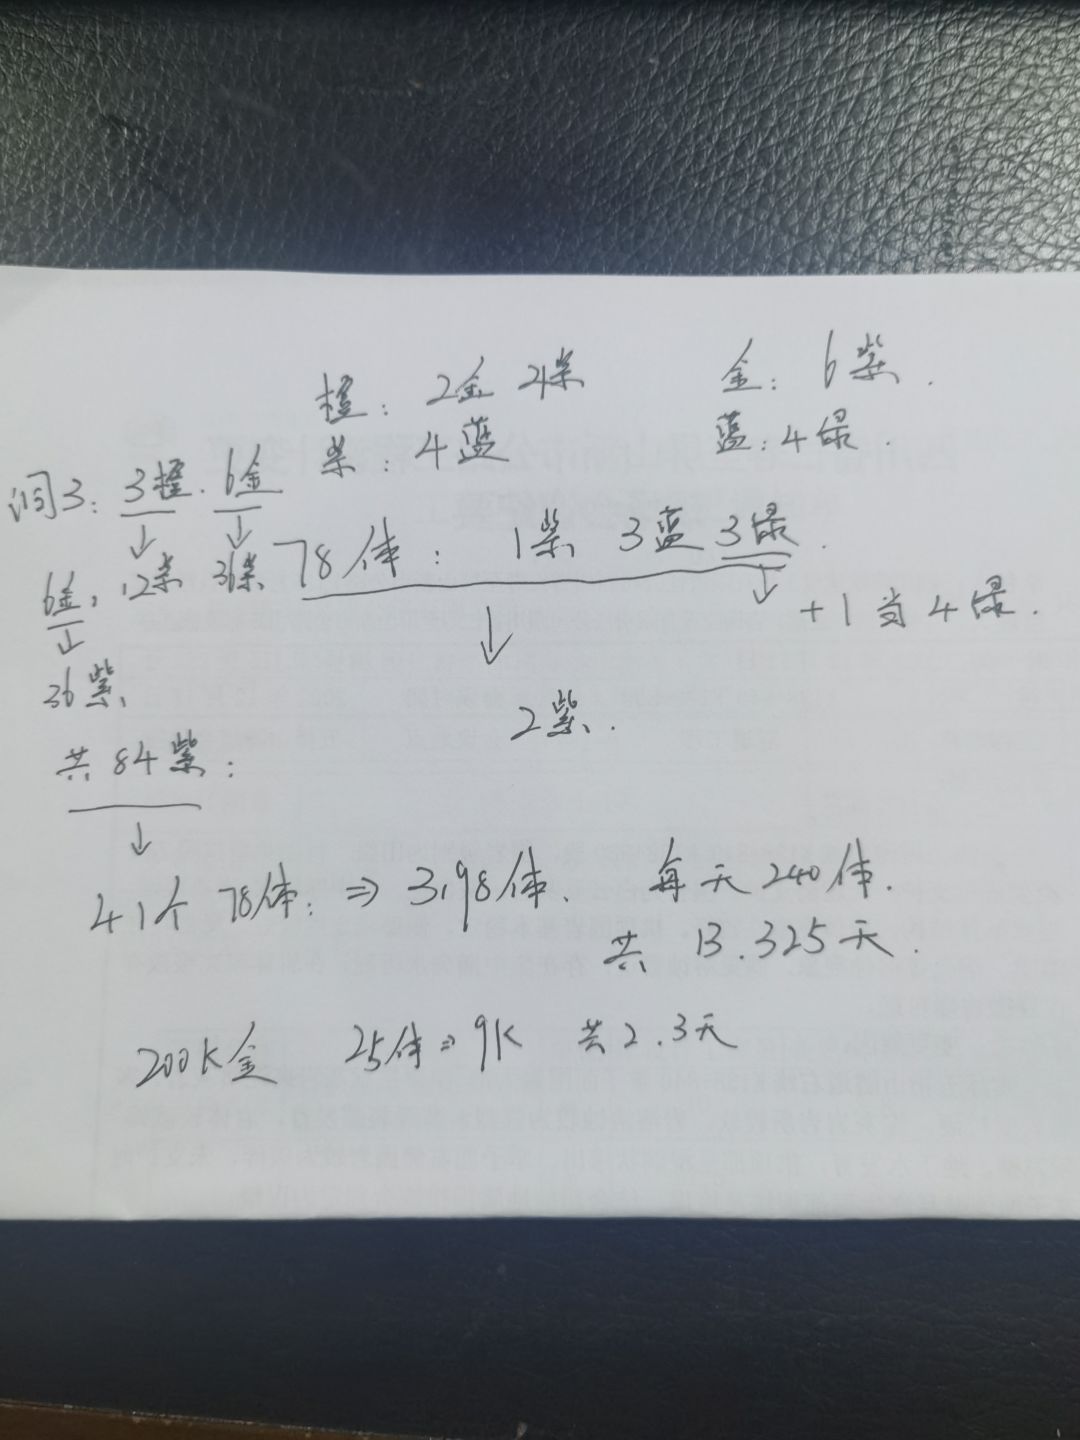 橙：2金 4紫
金：6紫.
紫：4蓝
蓝：4绿.
润3：3橙. 6金
78体：1紫 3蓝 3绿.
6金, 12紫 36紫
+1当4绿.
36紫,
2紫.
共84紫：
41个78体：⇒ 3198体.
每天240体.
共 13.325天.
200K金 25体⇒9K 共2.3天